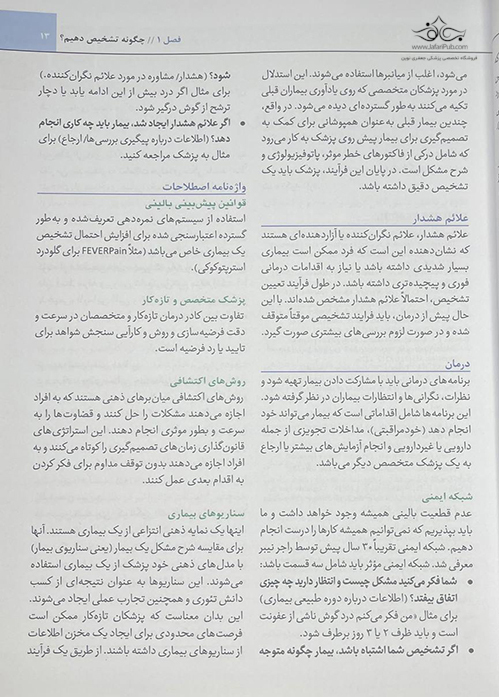 فصل ۱ // چگونه تشخیص دهیم؟ ۱۳
www.JafariPub.com
فروشگاه تخصصی پزشکی جعفری نوین
می‌شود، اغلب از میانبرها استفاده می‌شوند. این استدلال
در مورد پزشکان متخصص که روی یادآوری بیماران قبلی
تکیه می‌کنند به طور گسترده‌ای دیده می‌شود. در واقع،
چندین بیمار قبلی به‌عنوان همپوشانی برای کمک به
تصمیم‌گیری برای بیمار پیش روی پزشک به کار می‌رود
که شامل درکی از فاکتورهای خطر موثر، پاتوفیزیولوژی و
شرح مشکل است. در پایان این فرآیند، پزشک باید یک
تشخیص دقیق داشته باشد.
علائم هشدار
علائم هشدار، علائم نگران‌کننده یا آزاردهنده‌ای هستند
که نشان‌دهنده این است که فرد ممکن است بیماری
بسیار شدیدی داشته باشد یا نیاز به اقدامات درمانی
فوری و پیچیده‌تری داشته باشد. در طول فرآیند تعیین
تشخیص، احتمالاً علائم هشدار مشخص شده‌اند. با این
حال پیش از درمان، باید فرایند تشخیصی موقتاً متوقف
شده و در صورت لزوم بررسی‌های بیشتری صورت گیرد.
درمان
برنامه‌های درمانی باید با مشارکت دادن بیمار تهیه شود و
نظرات، نگرانی‌ها و انتظارات بیماران در نظر گرفته شود.
این برنامه‌ها شامل اقداماتی است که بیمار می‌تواند خود
انجام دهد (خودمراقبتی)، مداخلات تجویزی از جمله
دارویی یا غیردارویی و انجام آزمایش‌های بیشتر یا ارجاع
به یک پزشک متخصص دیگر می‌باشد.
شبکه ایمنی
عدم قطعیت بالینی همیشه وجود خواهد داشت و ما
باید بپذیریم که نمی‌توانیم همیشه کارها را درست انجام
دهیم. شبکه ایمنی تقریباً ۳۰ سال پیش توسط راجر نیبر
معرفی شد. شبکه ایمنی مؤثر باید شامل سه قسمت باشد:
• شما فکر می‌کنید مشکل چیست و انتظار دارید چه چیزی
اتفاق بیفتد؟ (اطلاعات درباره دوره طبیعی بیماری)
برای مثال «من فکر می‌کنم درد گوش ناشی از عفونت
است و باید ظرف ۲ یا ۳ روز برطرف شود.
• اگر تشخیص شما اشتباه باشد، بیمار چگونه متوجه
شود؟ (هشدار/ مشاوره در مورد علائم نگران‌کننده.)
برای مثال اگر درد بیش از این ادامه یابد یا دچار
ترشح از گوش درگیر شود.
• اگر علائم هشدار ایجاد شد، بیمار باید چه کاری انجام
دهد؟ (اطلاعات درباره پیگیری بررسی‌ها/ ارجاع) برای
مثال به پزشک مراجعه کنید.
واژه‌نامه اصطلاحات
قوانین پیش‌بینی بالینی
استفاده از سیستم‌های نمره‌دهی تعریف‌شده و به‌طور
گسترده اعتبارسنجی شده برای افزایش احتمال تشخیص
یک بیماری خاص می‌باشد (مثلاً FEVERPain برای گلودرد
استرپتوکوکی).
پزشک متخصص و تازه‌کار
تفاوت بین کادر درمان تازه‌کار و متخصصان در سرعت و
دقت فرضیه‌سازی و روش و کارآیی سنجش شواهد برای
تایید یا رد فرضیه است.
روش‌های اکتشافی
روش‌های اکتشافی میان‌برهای ذهنی هستند که به افراد
اجازه می‌دهند مشکلات را حل کنند و قضاوت‌ها را به
سرعت و بطور موثری انجام دهند. این استراتژی‌های
قانون‌گذاری زمان‌های تصمیم‌گیری را کوتاه می‌کنند و به
افراد اجازه می‌دهند بدون توقف مداوم برای فکر کردن
به اقدام بعدی عمل کنند.
سناریوهای بیماری
اینها یک نمایه ذهنی انتزاعی از یک بیماری هستند. آنها
برای مقایسه شرح مشکل یک بیمار (یعنی سناریوی بیمار)
با مدل‌های ذهنی خود پزشک از یک بیماری استفاده
می‌شوند. این سناریوها به عنوان نتیجه‌ای از کسب
دانش تئوری و همچنین تجارب عملی ایجاد می‌شوند.
این بدان معناست که پزشکان تازه‌کار ممکن است
فرصت‌های محدودی برای ایجاد یک مخزن اطلاعات
از سناریوهای بیماری داشته باشند. از طریق یک فرآیند